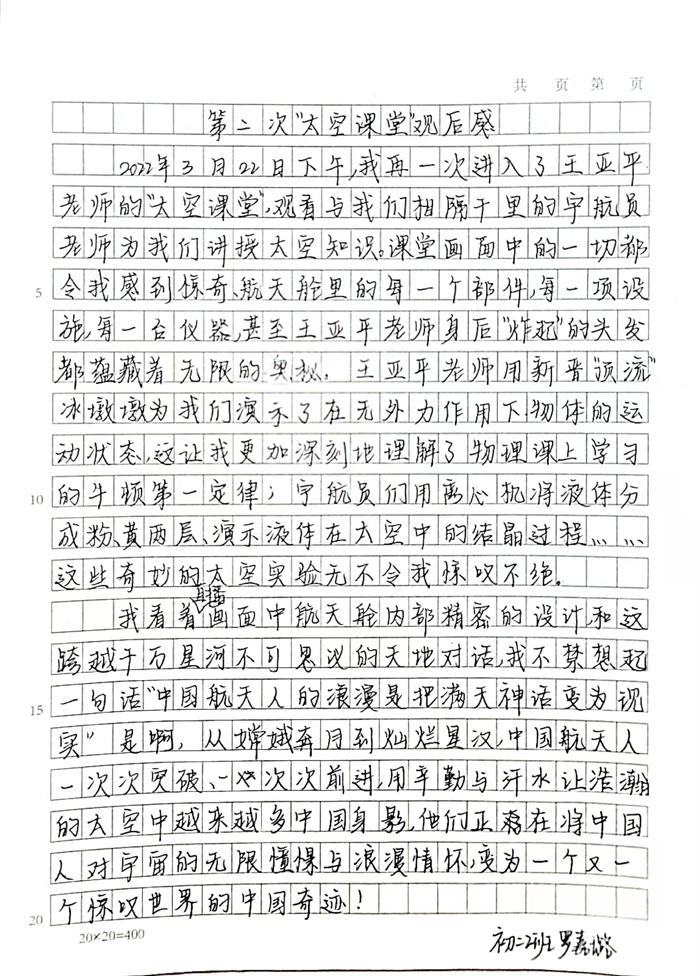 共 页 第 页
第二次"太空课堂"观后感
2022年3月22日下午,我再一次进入了王亚平
老师的"太空课堂",观看与我们相隔千里的宇航员
老师为我们讲授太空知识。课堂画面中的一切都
5 令我感到惊奇、航天舱里的每一个部件,每一项设
施,每一台仪器,甚至王亚平老师身后"炸起"的头发
都蕴藏着无限的奥秘。王亚平老师用新晋"顶流"
冰墩墩为我们演示了在无外力作用下,物体的运
动状态,这让我更加深刻地理解了物理课上学习
10 的牛顿第一定律;宇航员们用离心机将液体分
成粉、黄两层、演示液体在太空中的结晶过程……
这些奇妙的太空实验无不令我惊叹不绝。
我看着直播画面中航天舱内部精密的设计,和这
跨越千万星河不可思议的天地对话,我不禁想起
15 一句话"中国航天人的浪漫是把满天神话变为现
实"是啊,从嫦娥奔月到灿烂星汉,中国航天人
一次次突破、一次次前进,用辛勤与汗水让浩瀚
的太空中越来越多中国身影,他们正在将中国
人对宇宙的无限憧憬与浪漫情怀,变为一个又一
20 个惊叹世界的中国奇迹!
20×20=400
初二2班 罗嘉